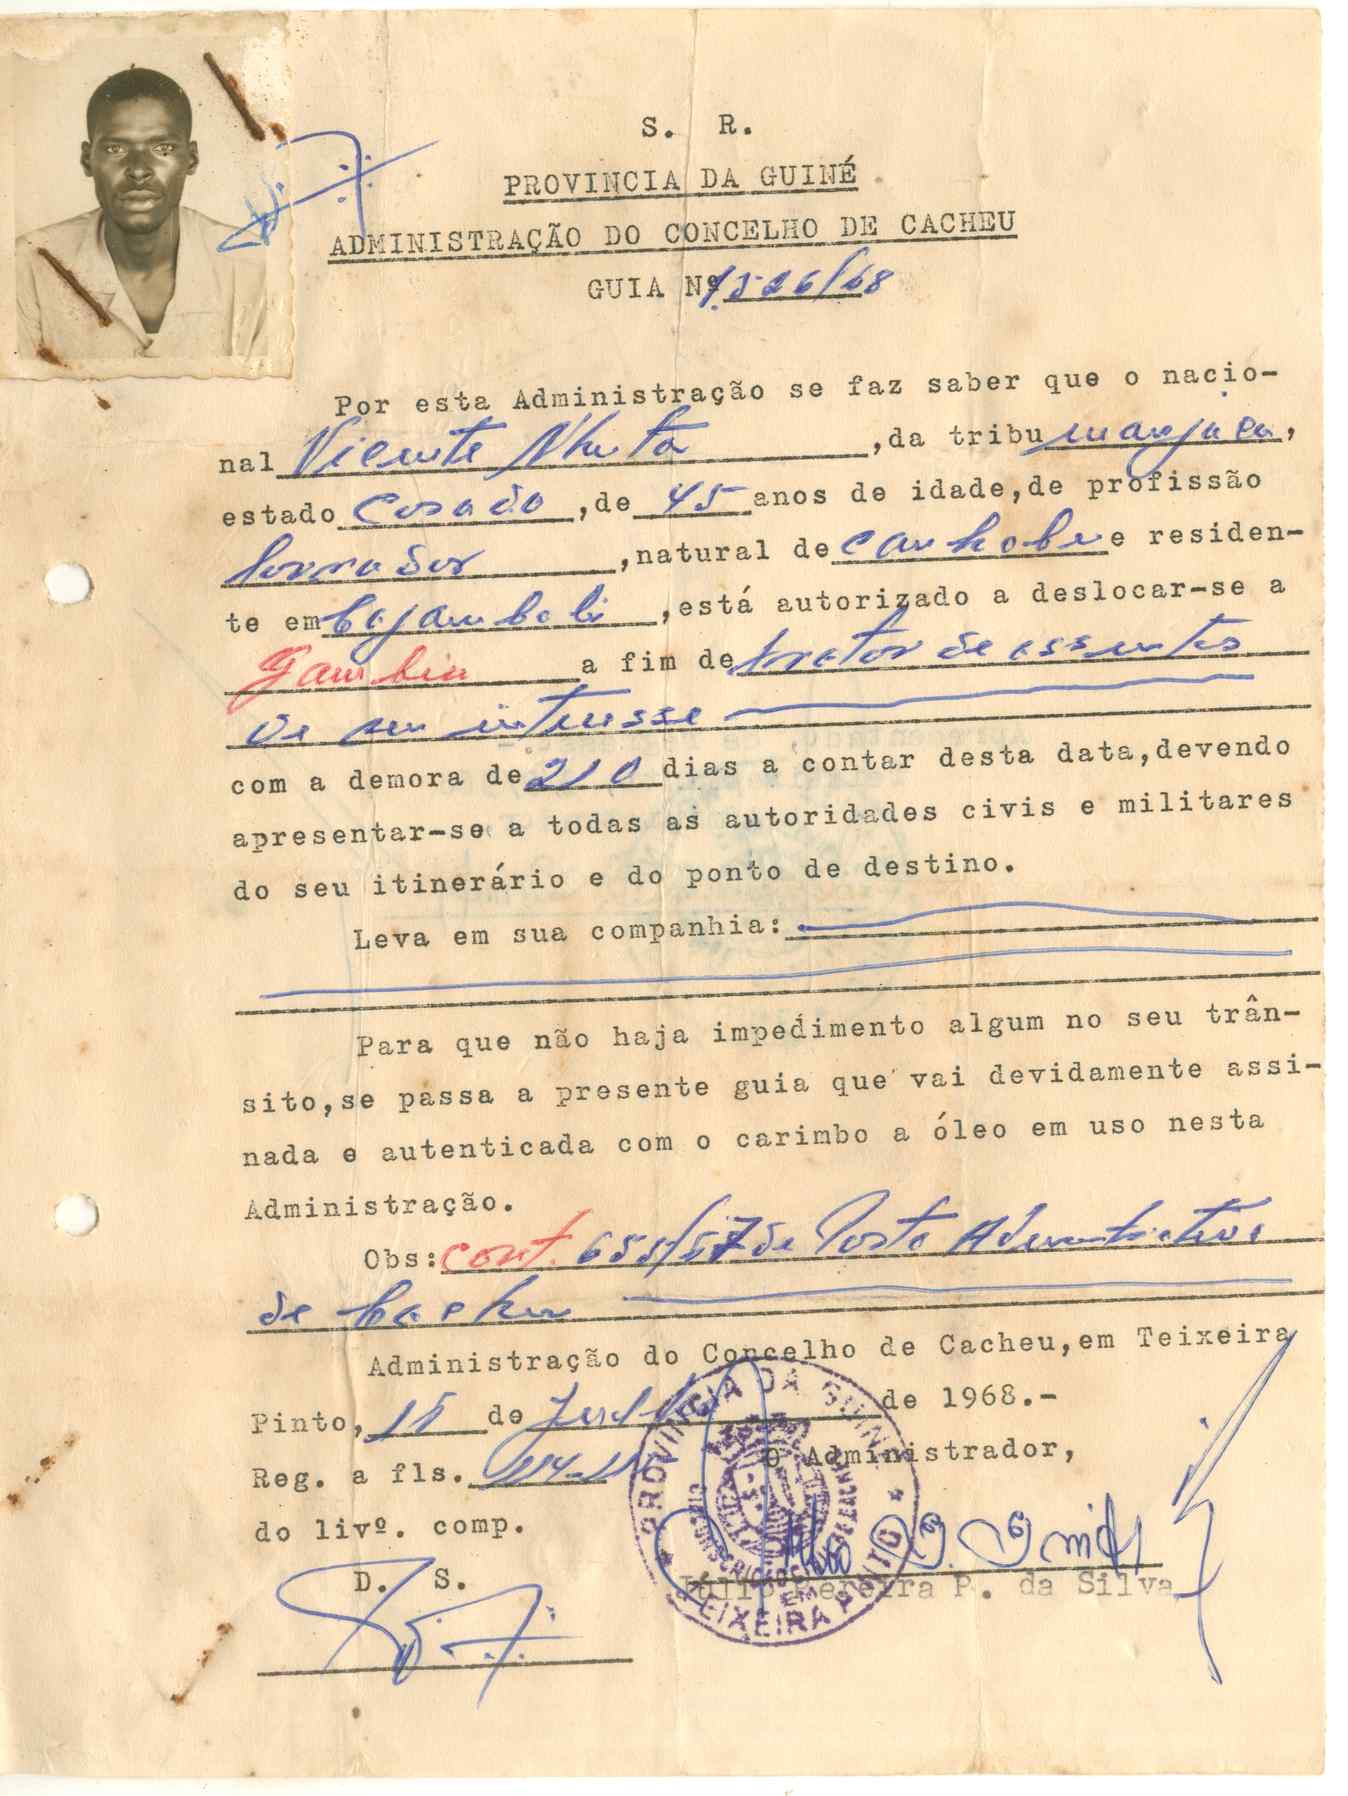 S. R.
PROVINCIA DA GUINÉ
ADMINISTRAÇÃO DO CONCELHO DE CACHEU
GUIA Nº 1526/68
Por esta Administração se faz saber que o nacio-
nal Vicente Nhuta ,da tribu manjaca,
estado casado ,de 45 anos de idade,de profissão
lavrador ,natural de canhobe e residen-
te em Cajambali ,está autorizado a deslocar-se a
Gambia a fim de tratar de assuntos
de seu interesse
com a demora de 210 dias a contar desta data,devendo
apresentar-se a todas as autoridades civis e militares
do seu itinerário e do ponto de destino.
Leva em sua companhia:
Para que não haja impedimento algum no seu trân-
sito,se passa a presente guia que vai devidamente assi-
nada e autenticada com o carimbo a óleo em uso nesta
Administração.
Obs: cont. de Posto Administrativo
de Cacheu
Administração do Concelho de Cacheu,em Teixeira
Pinto, 15 de de 1968.-
Reg. a fls. O Administrador,
do livº. comp.
D. S.
Júlio Pereira P. da Silva
PROVINCIA DA GUINÉ
TEIXEIRA PINTO